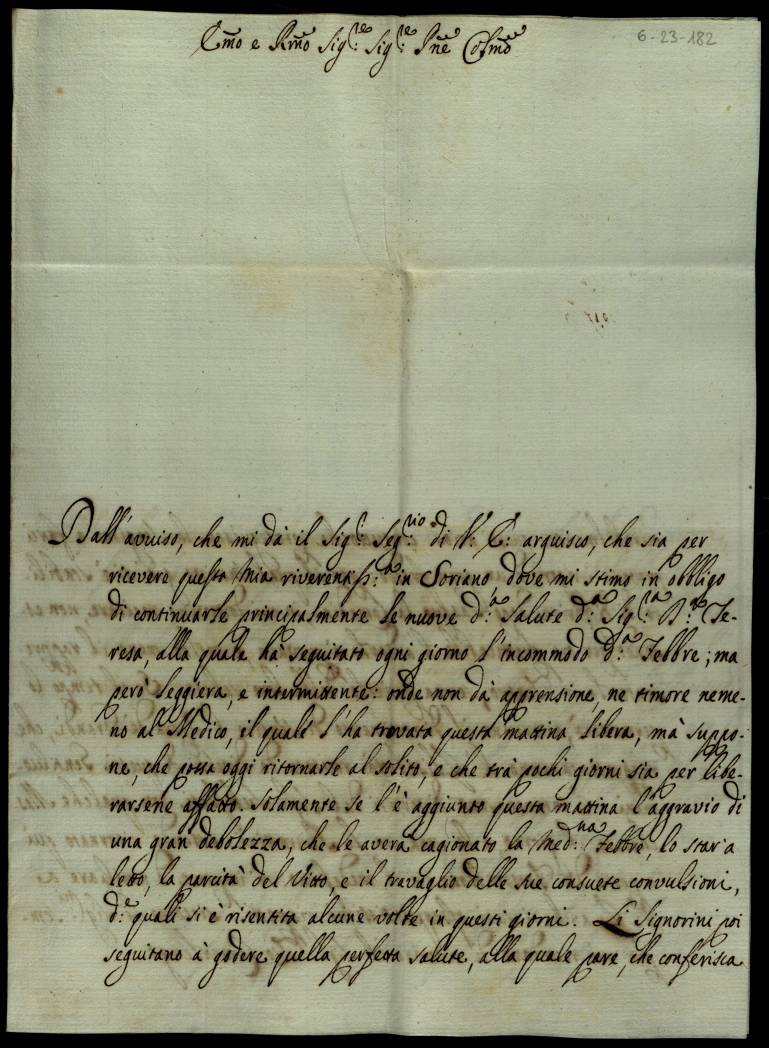 E͞mo e R͞mo Sig:re Sig:re P͞ne Col͞mo
6-23-182
Dall'avviso, che mi dà il Sig:r Seg:rio di V: E: arguisco, che sia per
ricevere questa mia riverentiss:a in Soriano, dove mi stimo in obbligo
di continuarle principalmente le nuove d:a Salute d:a Sig:ra B:ne Te-
resa, alla quale hà seguitato ogni giorno l'incommodo d:a Febbre; ma
però leggiera, e intermittente: onde non dà apprensione, ne timore neme-
no al Medico, il quale l'ha trovata questa mattina libera, mà suppo-
ne, che possa oggi ritornarle al solito, e che trà pochi giorni sia per libe-
rarsene affatto. Solamente se l'è aggiunto questa mattina l'aggravio di
una gran debolezza, che le averà cagionato la Med:ma Febbre, lo star a
letto, la parcità del Vitto, e il travaglio delle sue consuete convulsioni,
d:e quali si è risentita alcune volte in questi giorni. Li Signorini poi
seguitano à godere quella perfetta salute, alla quale pare, che conferisca